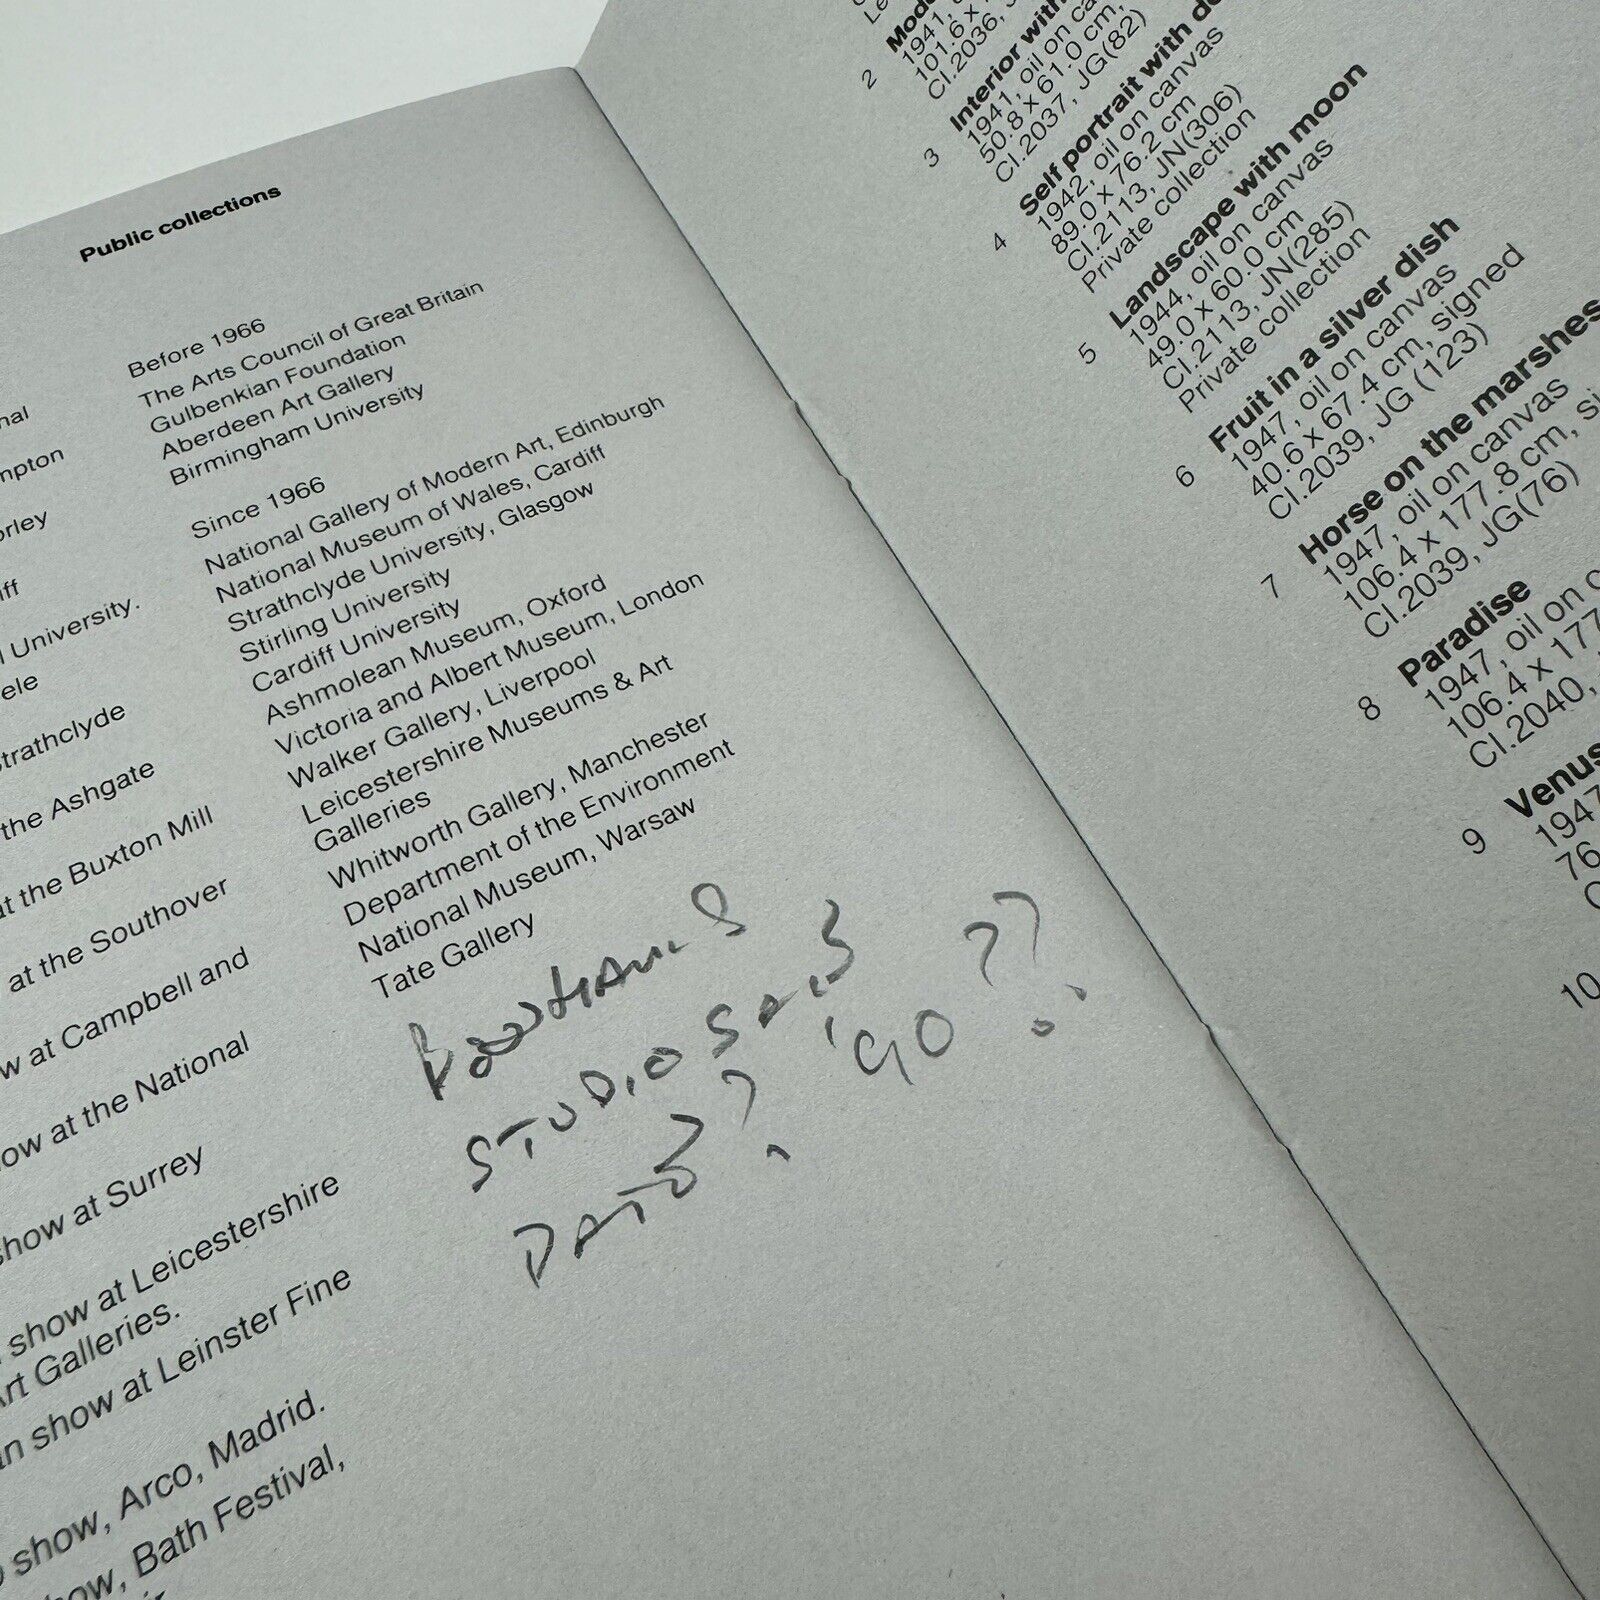 Public collections
Before 1966
The Arts Council of Great Britain
Gulbenkian Foundation
Aberdeen Art Gallery
Birmingham University
Since 1966
National Gallery of Modern Art, Edinburgh
National Museum of Wales, Cardiff
Strathclyde University, Glasgow
Stirling University
Cardiff University
Ashmolean Museum, Oxford
Victoria and Albert Museum, London
Walker Gallery, Liverpool
Leicestershire Museums & Art
Galleries
Whitworth Gallery, Manchester
Department of the Environment
National Museum, Warsaw
Tate Gallery
STUDIO
DATE? '90??
University.
the Ashgate
at the Buxton Mill
at the Southover
at Campbell and
at the National
show at Surrey
show at Leicestershire
Art Galleries.
show at Leinster Fine
show, Arco, Madrid.
Bath Festival,
2
1941,
101.6 x
CI.2036,
3 Interior with
1941, oil on
50.8 x 61.0 cm,
CI.2037, JG(82)
4 Self portrait with
1942, oil on canvas
89.0 x 76.2 cm
CI.2113, JN(306)
Private collection
5 Landscape with moon
1944, oil on canvas
49.0 x 60.0 cm
CI.2113, JN(285)
Private collection
6 Fruit in a silver dish
1947, oil on canvas
40.6 x 67.4 cm, signed
CI.2039, JG (123)
7 Horse on the marshes
1947, oil on canvas
106.4 x 177.8 cm,
CI.2039, JG(76)
8 Paradise
1947, oil on
106.4 x 177
CI.2040,
9 Venus
1947
76
10